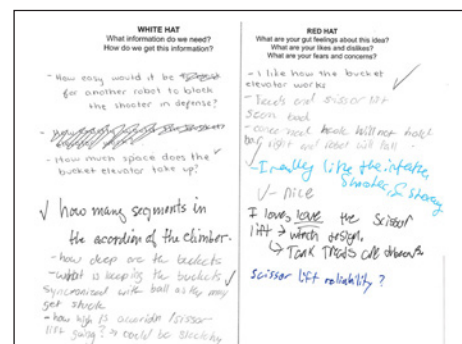 WHITE HAT
What information do we need?
How do we get this information?
- How easy would it be
for another robot to block
the shooter in defense?
- How much space does the
bucket elevator take up?
how many segments in
the accordion of the climber.
- how deep are the buckets
- what is keeping the buckets
syncronized with ball as they may
get stuck
- how high is accordion/scissor
lift going? → could be sketchy
RED HAT
What are your gut feelings about this idea?
What are your likes and dislikes?
What are your fears and concerns?
- I like how the bucket
elevator works
- treads and scissor lift
seem bad
- concerned hook will not hold
right and robot will fall
- I really like the intake,
Shooter, & Storage
- nice
I love, love the scissor
lift → winch design,
Tank Treads are
scissor lift reliability?